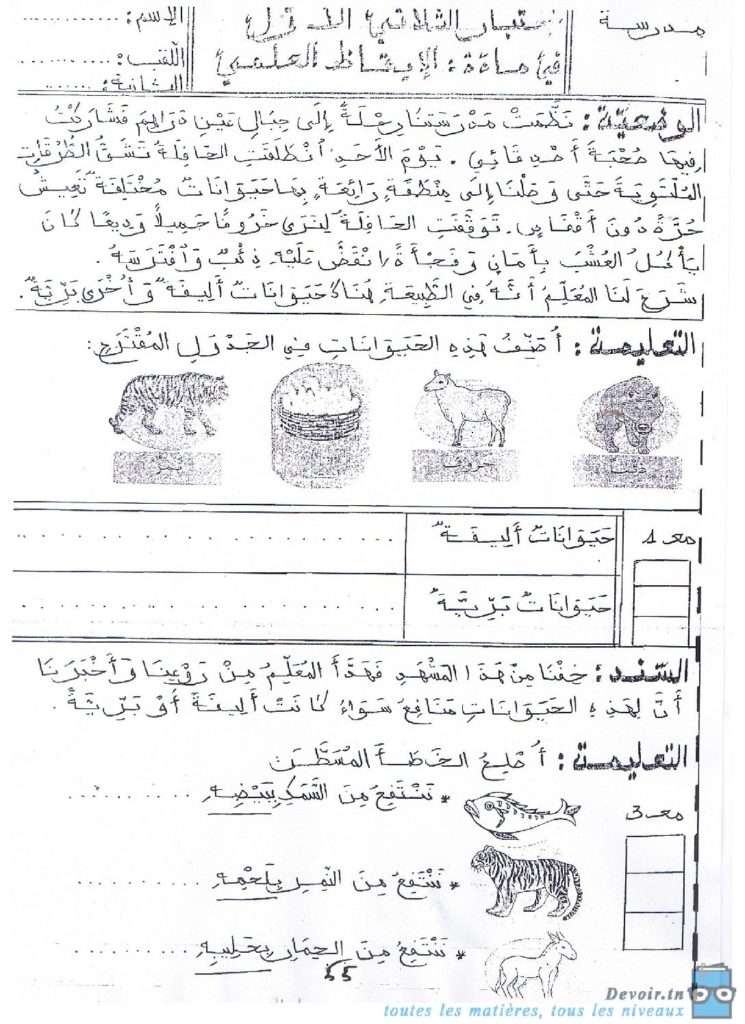 مدرسة
إختبار الثلاثي الأول
في مادة: الإيقاظ العلمي
الإسم: ............
اللقب: ............
الثانية: ......
الوضعيّة: نَظَّمَتْ مَدْرَسَتُنَا رِحْلَةً إِلَى جِبَالِ عَيْنِ دَرَاهِمَ فَشَارَكْتُ
فِيهَا صُحْبَةَ أَصْدِقَائِي. يَوْمَ الأَحَدِ انْطَلَقَتِ الحَافِلَةُ تَشُقُّ الطُّرُقَاتِ
المُلْتَوِيَةَ حَتَّى وَصَلْنَا إِلَى مِنْطَقَةٍ رَائِعَةٍ بِهَا حَيَوَانَاتٌ مُخْتَلِفَةٌ تَعِيشُ
حُرَّةً دُونَ أَقْفَاصٍ. تَوَقَّفَتِ الحَافِلَةُ لِنَرَى خَرُوفًا جَمِيلاً وَدِيعًا كَانَ
يَأْكُلُ العُشْبَ بِأَمَانٍ وَفَجْأَةً انْقَضَّ عَلَيْهِ ذِئْبٌ وَافْتَرَسَهُ.
شَرَحَ لَنَا المُعَلِّمُ أَنَّهُ فِي الطَّبِيعَةِ هُنَاكَ حَيَوَانَاتٌ أَلِيفَةٌ وَأُخْرَى بَرِّيَّةٌ.
التعليمة: أُصَنِّفُ هَذِهِ الحَيَوَانَاتِ فِي الجَدْوَلِ المُقْتَرَحِ:
خروف
نمر
مع 1
حَيَوَانَاتٌ أَلِيفَةٌ
حَيَوَانَاتٌ بَرِّيَّةٌ
السّند: خِفْنَا مِنْ هَذَا المَشْهَدِ فَهَدَّأَ المُعَلِّمُ مِنْ رَوْعِنَا وَأَخْبَرَنَا
أَنَّ لِهَذِهِ الحَيَوَانَاتِ مَنَافِعُ سَوَاءٌ كَانَتْ أَلِيفَةً أَوْ بَرِّيَّةً.
التعليمة: أُصْلِحُ الخَطَأَ المُسَطَّرَ
مع 3
* نَنْتَفِعُ مِنَ السَّمَكِ بِبَيْضِهِ ............
* نَنْتَفِعُ مِنَ النَّمِرِ بِلَحْمِهِ ............
* نَنْتَفِعُ مِنَ الحِمَارِ بِحَلِيبِهِ ............
55
Devoir.tn
toutes les matières, tous les niveaux